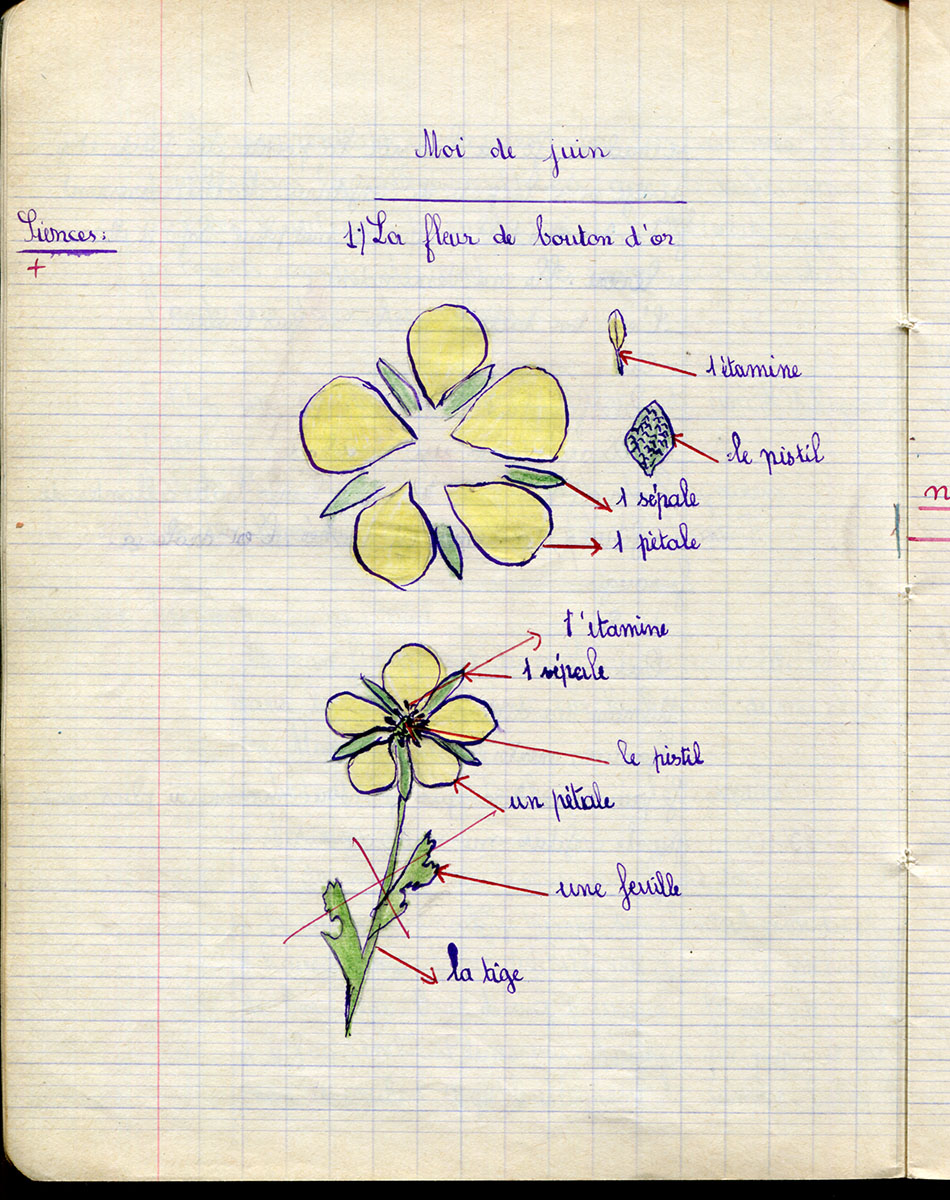 Moi de juin
Siences:
+
1) La fleur de bouton d'or
1 étamine
le pistil
1 sépale
1 pétale
1 'étamine
1 sépale
le pistil
un pétale
une feuille
la tige
n